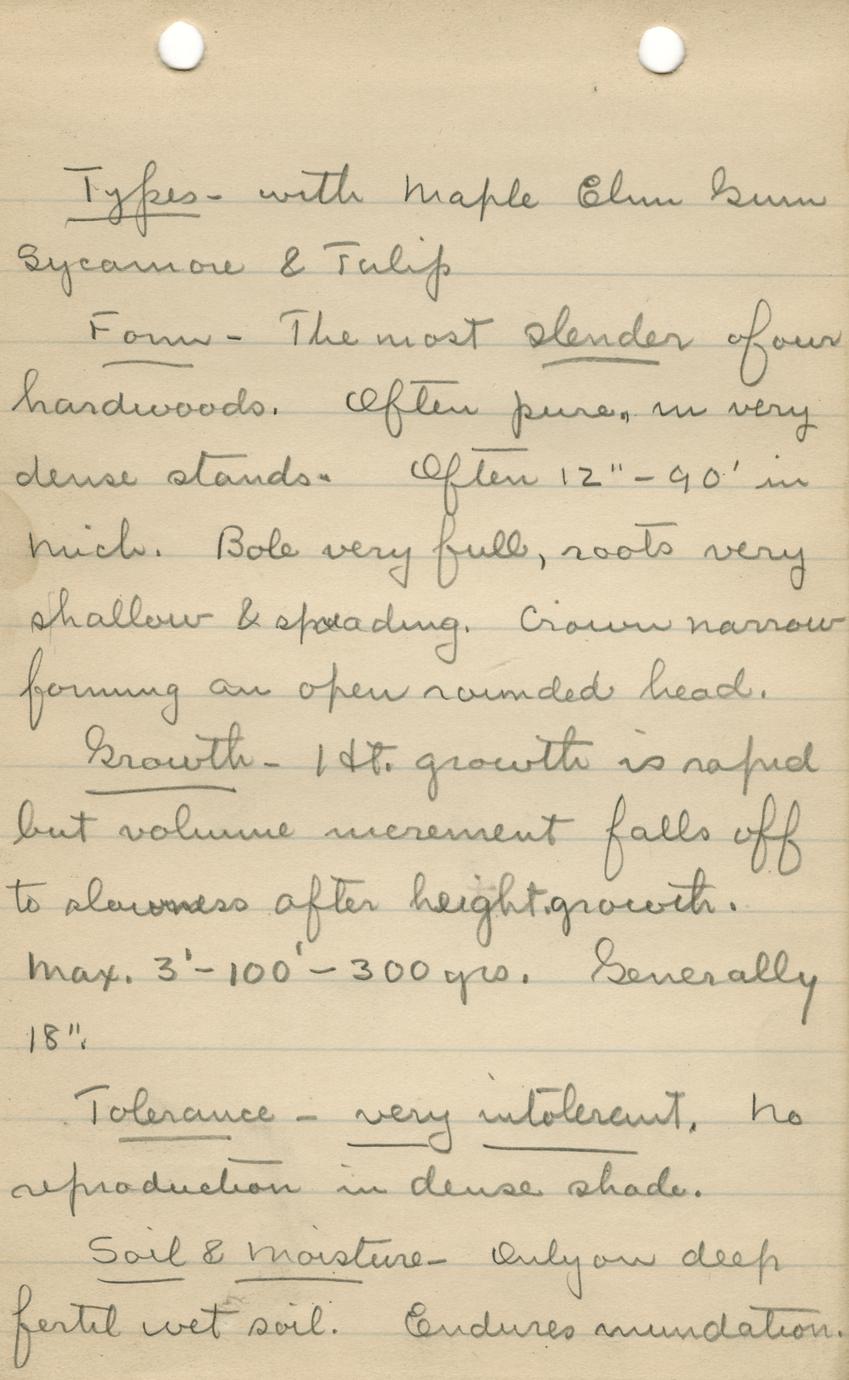 Types- with Maple Elm Gum
Sycamore & Tulip
Form - The most slender of our
hardwoods. Often pure, in very
dense stands. Often 12"-90' in
Mich. Bole very full, roots very
shallow & spreading. Crown narrow
forming an open rounded head.
Growth - Ht. growth is rapid
but volume increment falls off
to slowness after height growth.
Max. 3'-100'-300 yrs. Generally
18".
Tolerance - very intolerant. No
reproduction in dense shade.
Soil & Moisture- Only on deep
fertil wet soil. Endures inundation.